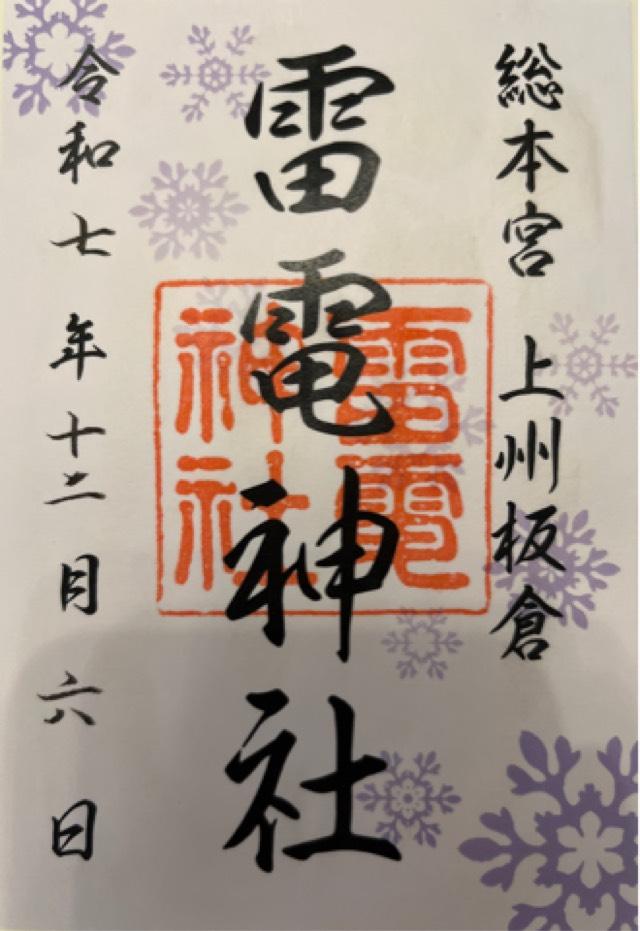 総本宮 上州板倉
雷電神社
雷電
神社
令和七年十二月六日